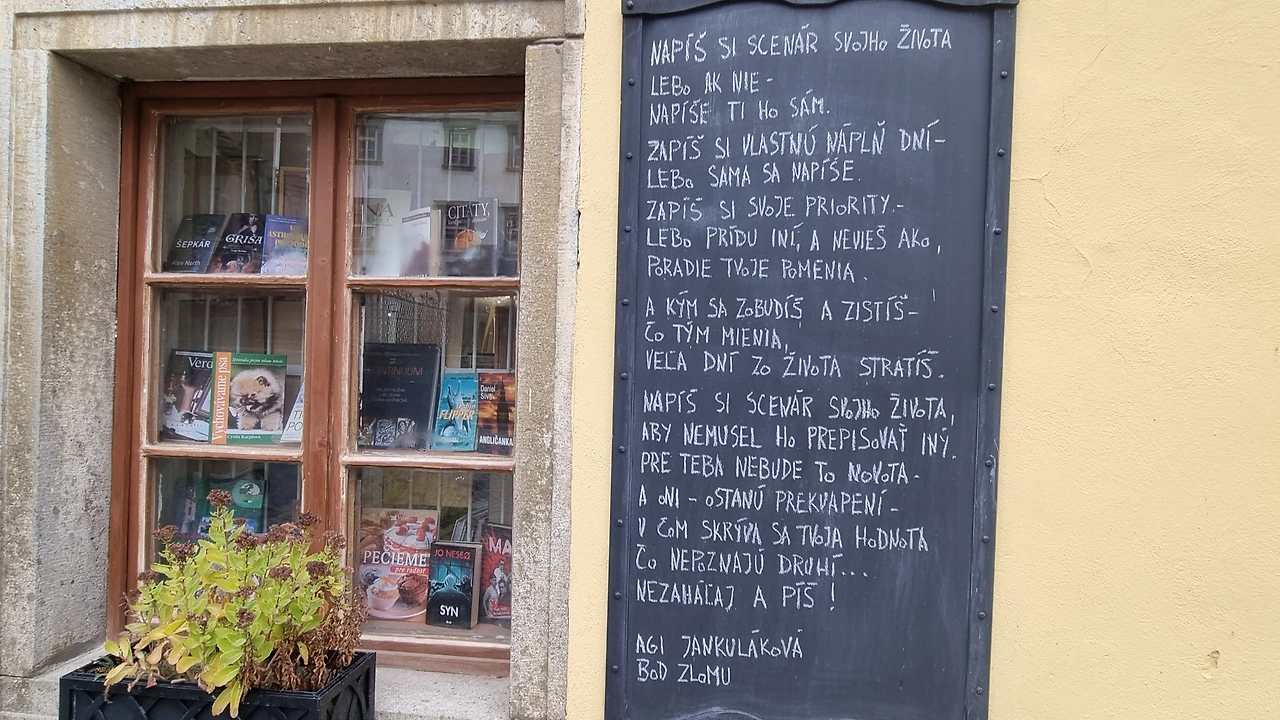 ŠEPKÁR
Alex North
GRIŠA
CITÁTY,
Vychovávame psa
CONTINUUM
FLIPPER
Daniel
Silva
ANGLIČANKA
PEČIEME
pre radosť
JO NESBO
SYN
NAPÍŠ SI SCENÁR SVOJHO ŽIVOTA
LEBO AK NIE -
NAPÍŠE TI HO SÁM.
ZAPÍŠ SI VLASTNÚ NÁPLŇ DNÍ-
LEBO SAMA SA NAPÍŠE.
ZAPÍŠ SI SVOJE PRIORITY.-
LEBO PRÍDU INÍ, A NEVIEŠ AKO,
PORADIE TVOJE POMENIA.
A KÝM SA ZOBUDÍŠ A ZISTÍŠ-
ČO TÝM MIENIA,
VEĽA DNÍ ZO ŽIVOTA STRATÍŠ.
NAPÍŠ SI SCENÁR SVOJHO ŽIVOTA,
ABY NEMUSEL HO PREPISOVAŤ INÝ.
PRE TEBA NEBUDE TO NOVOTA-
A ONI - OSTANÚ PREKVAPENÍ-
V ČOM SKRÝVA SA TVOJA HODNOTA
ČO NEPOZNAJÚ DRUHÍ...
NEZAHÁĽAJ A PÍŠ!
AGI JANKULÁKOVÁ
BOD ZLOMU